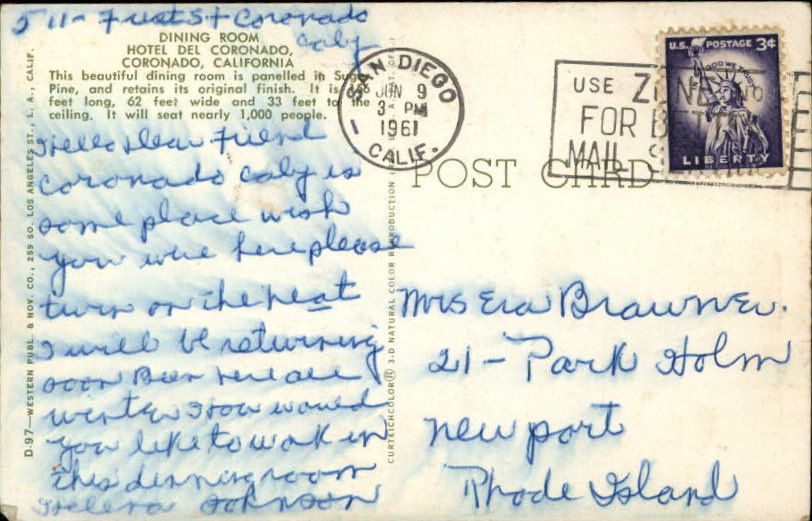 511- First St Coronado
Caly
DINING ROOM
HOTEL DEL CORONADO,
CORONADO, CALIFORNIA
This beautiful dining room is panelled in Sugar
Pine, and retains its original finish. It is 156
feet long, 62 feet wide and 33 feet to the
ceiling. It will seat nearly 1,000 people.
Hello Dear Friend
Coronado Caly is
some place wish
you were here please
turn on the heat
I will be returning
soon Been here all
winter How would
you like to work in
this dinning room
Helena Johnson
D.97—WESTERN PUBL. & NOV. CO., 259 SO. LOS ANGELES ST., L. A., CALIF.
CURTEICHCOLOR® 3-D NATURAL COLOR REPRODUCTION
SAN DIEGO
CALIF.
JUN 9
3- PM
1961
USE ZONE NO
FOR BETTER
MAIL
U.S. POSTAGE 3¢
IN GOD WE TRUST
LIBERTY
POST CARD
Mrs Era Brawner.
21- Park Holm
Newport
Rhode Island